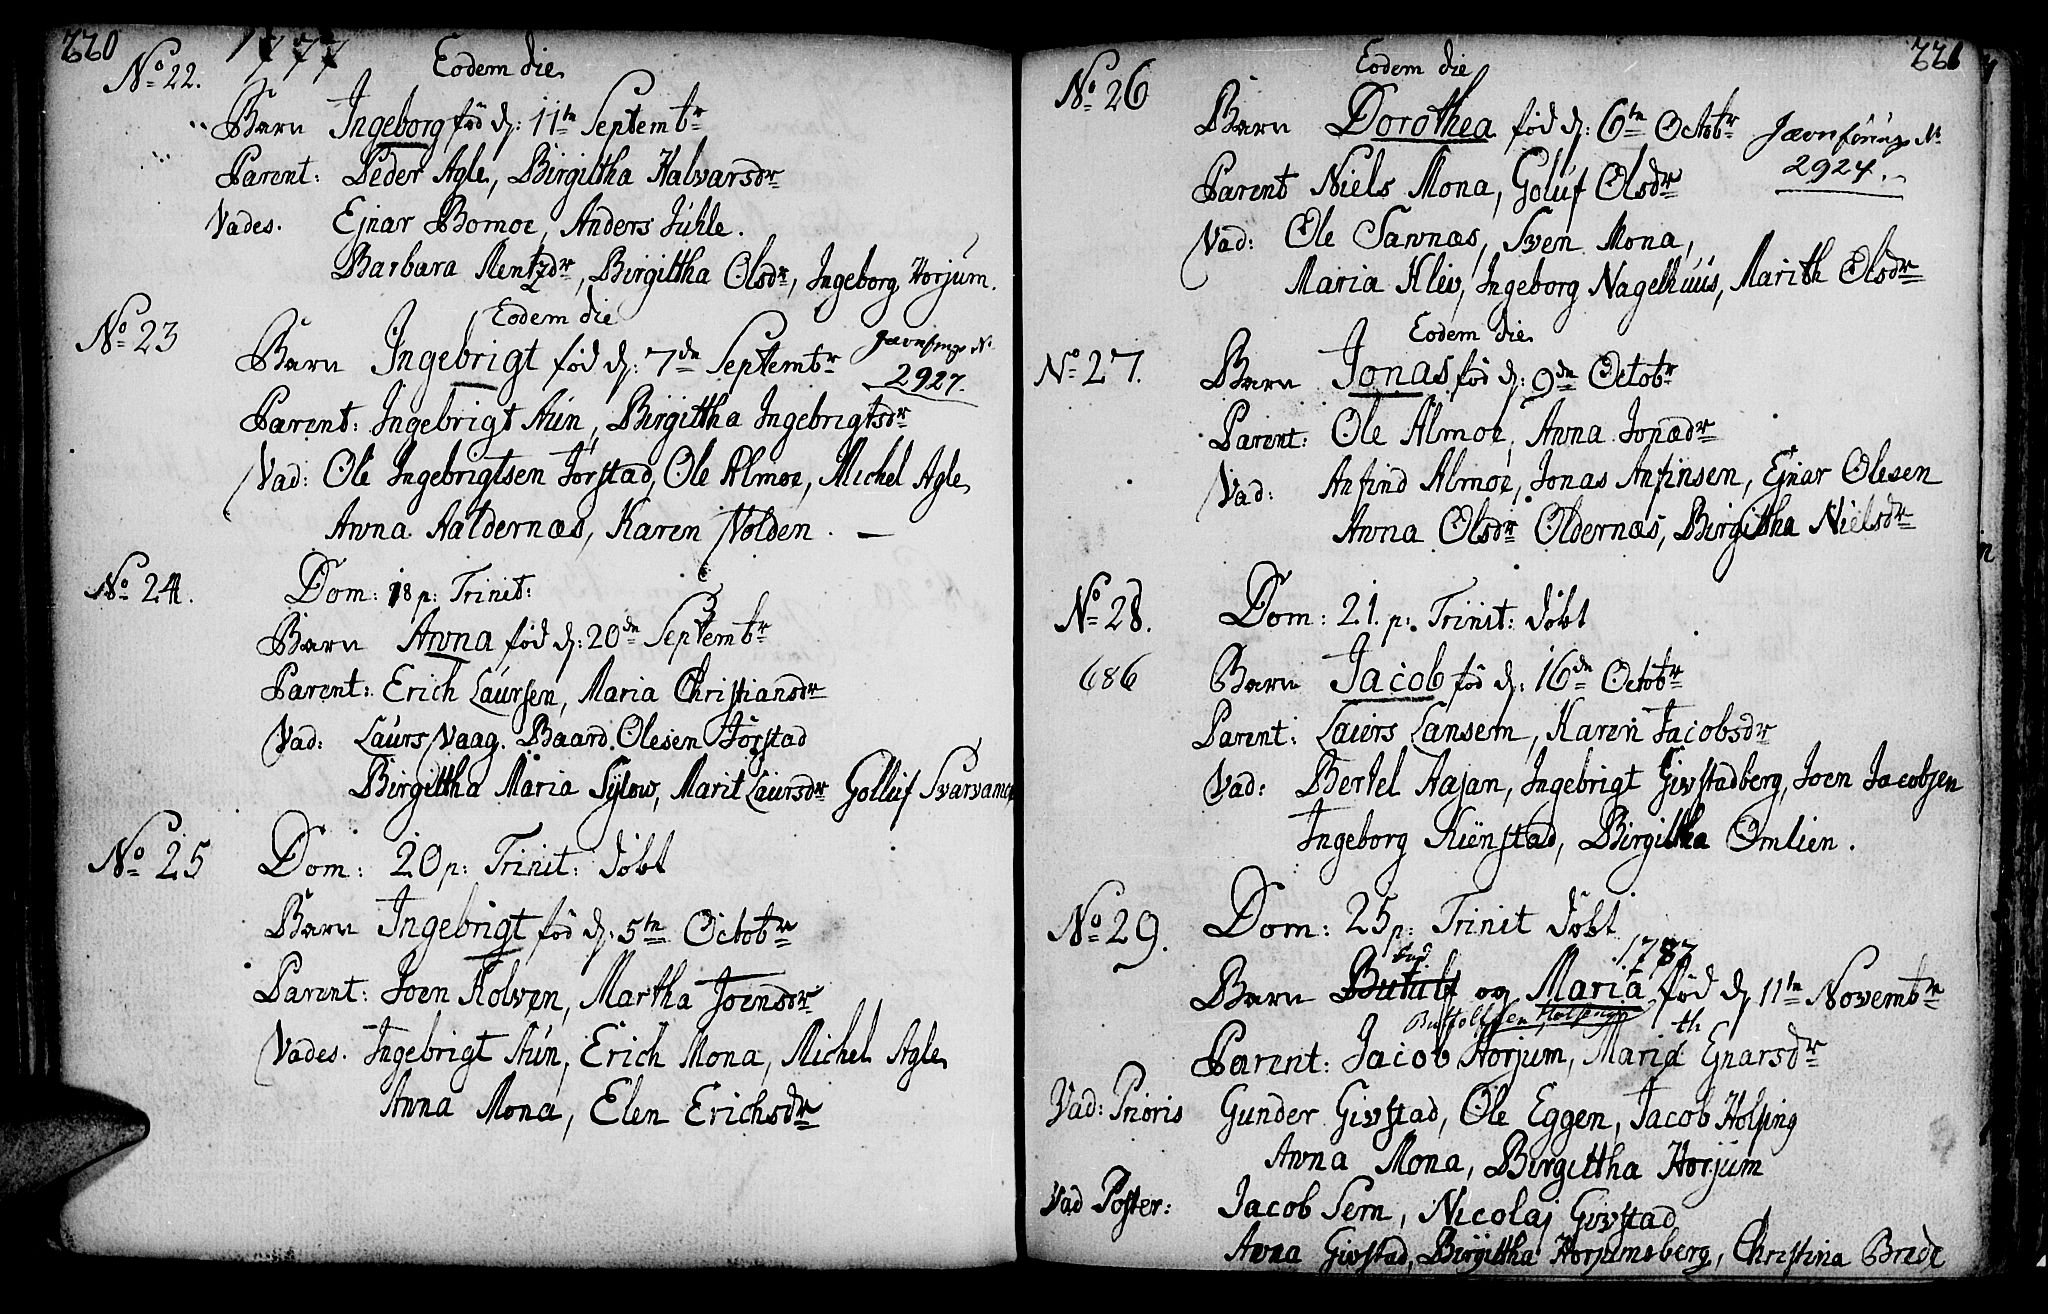 220 1777
No 22. Eodem die
Barn Ingeborg fød d: 11te Septembr
Parent: Peder Agle, Birgittha Halvarsdr
Vades. Ejnar Bomoe, Anders Juhle.
Barbara Mentzdr, Birgittha Olsdr, Ingeborg Horjum.
No 23 Eodem die
Barn Ingebrigt fød d: 7de Septembr
2927.
Parent: Ingebrigt Aün, Birgittha Ingebrigtsdr
Vad: Ole Ingebrigtsen Jørstad, Ole Almoe, Michel Agle,
Anna Aaldernæs, Karen Nolden. —
No 24. Dom: 18 p: Trinit:
Barn Anna fød d: 20de Septembr
Parent: Erich Laursen, Maria Christiansdr
Vad: Laurs Vaag. Baard Olesen Jørstad
Birgittha Maria Sylow, Marit Laursdr Golluf Svarvamoe
No 25 Dom: 20 p: Trinit: døbt
Barn Ingebrigt fød d: 5te Octobr
Parent: Joen Kolven, Martha Joensdr
Vades. Ingebrigt Aün, Erich Mona, Michel Agle,
Anna Mona, Elen Erichsdr
221
No 26 Eodem die
Barn Dorothea fød d: 6te Octobr
2924.
Parent Niels Mona, Goluf Olsdr
Vad: Ole Savnæs, Sven Mona,
Maria Klev, Ingeborg Nagelhuus, Marith Olsdr
Eodem die
No 27. Barn Jonas fød d: 9de Octobr
Parent: Ole Almoe, Anna Jonædr
Vad: Anfind Almoe, Jonas Anfinsen, Ejnar Olesen
Anna Olsdr Oldernæs, Birgittha Nielsdr
No 28. Dom: 21. p: Trinit: døbt
686 Barn Jacob fød d: 16de Octobr
Parent: Laurs Lansem, Karen Jacobsdr
Vad: Bertel Aajam, Ingebrigt Givstadberg, Joen Jacobsen
Ingeborg Kienstad, Birgittha Omlien.
No 29. Dom: 25 p: Trinit døbt
1787
Barn og Maria fød d 11te Novembr
th
Parent: Jacob Horjum, Maria Ejnarsdr
Vad: Prioris Gunder Givstad, Ole Eggen, Jacob Holsing
Anna Mona, Birgittha Horjum
Vad Poster: Jacob Sem, Nicolaj Givstad
Anna Givstad, Birgittha Horjumsberg, Christina Brede